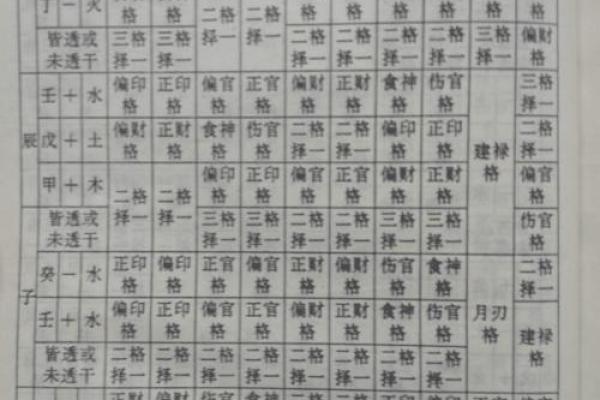 丁 一 火 格 格 二格 二格 格 格 格 格 格 格
择一 择一
皆透或 三格 三格 二格 二格 二格 二格 三格 偏财
未透干 择一 择一 择一 择一 择一 择一 择一 格
壬 十 水 偏印 正印 偏官 正官 偏财 正财 食神 伤官 三格
格 格 格 格 格 格 格 格 择一
辰 戊 十 土 偏财 正财 食神 伤官 二格 二格 偏印 正印 建禄 二格
格 格 格 格 择一 择一 格 格 格 择一
甲 十 木 二格 二格 偏印 正印 偏官 正官 偏财 正财 偏官
择一 择一 格 格 格 格 格 格 格
皆透或 三格 三格 二格 二格 三格 三格 伤官
未透干 择一 择一 择一 择一 择一 择一 格
子 癸 一 水 正印 偏印 正官 偏官 正财 偏财 伤官 食神 二格
格 格 格 格 格 格 格 格 择一
壬 十 水 偏印 正印 偏官 正官 偏财 正财 食神 伤官 月刃 建禄
格 格 格 格 格 格 格 格 格 格
皆透或 二格 二格 二格 二格 二格 二格 二格 二格
未透干 择一 择一 择一 择一 择一 择一 择一 择一